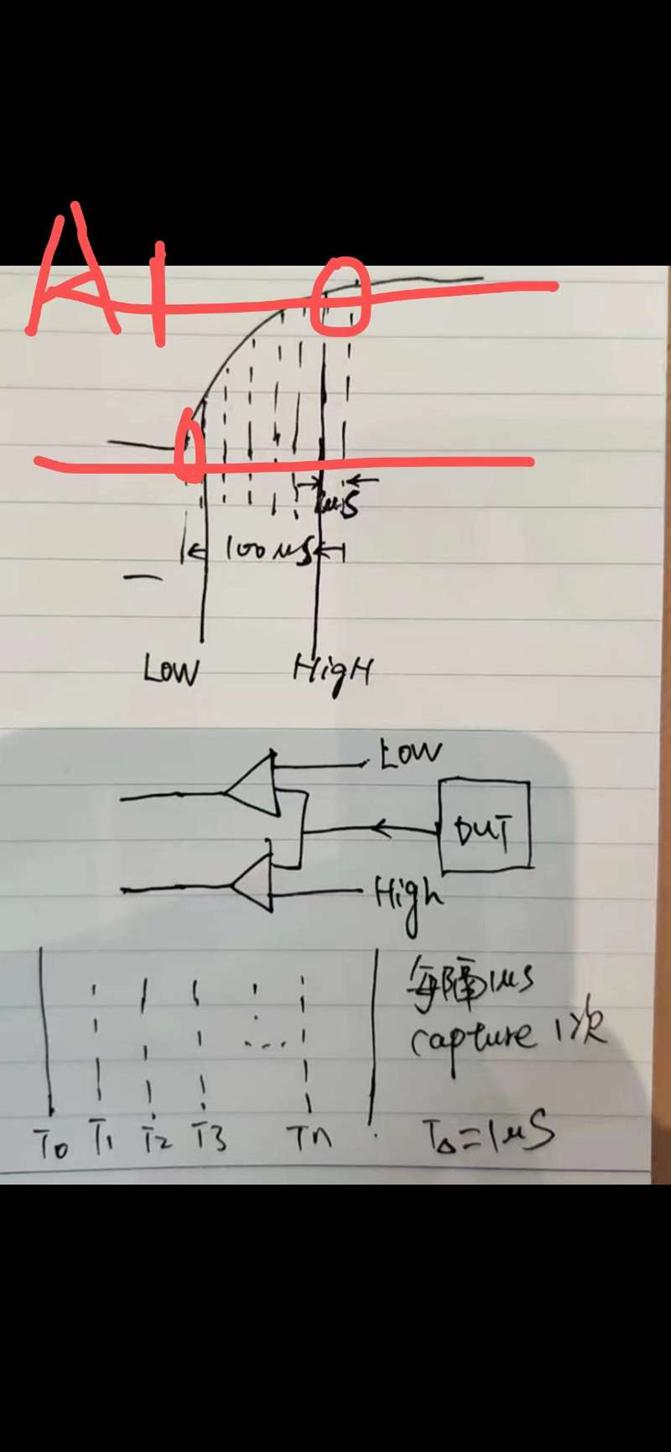 A1
1μs
100μs
Low
HigH
Low
DUT
High
每隔1μs
capture 1次
T0 T1 T2 T3 Tn
TΔ=1μs